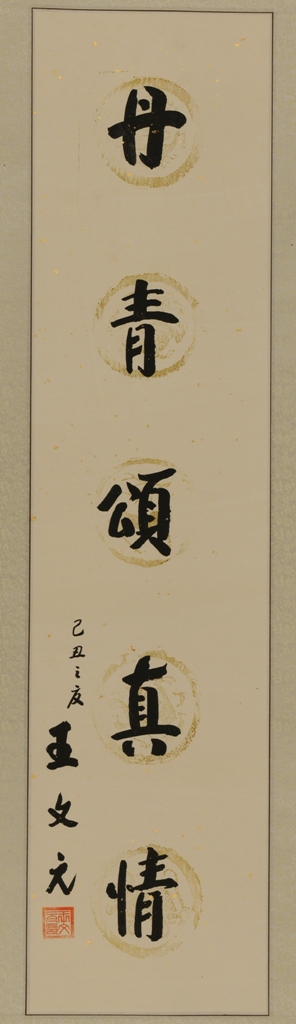 丹青頌真情
己丑之夏
王文元